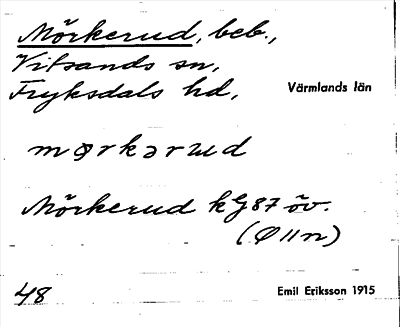 Mörkerud, beb.,
Vitsands sn,
Fryksdals hd, Värmlands län
mørkərud
Mörkerud kG87 öv.
(Ø11n)
48 Emil Eriksson 1915